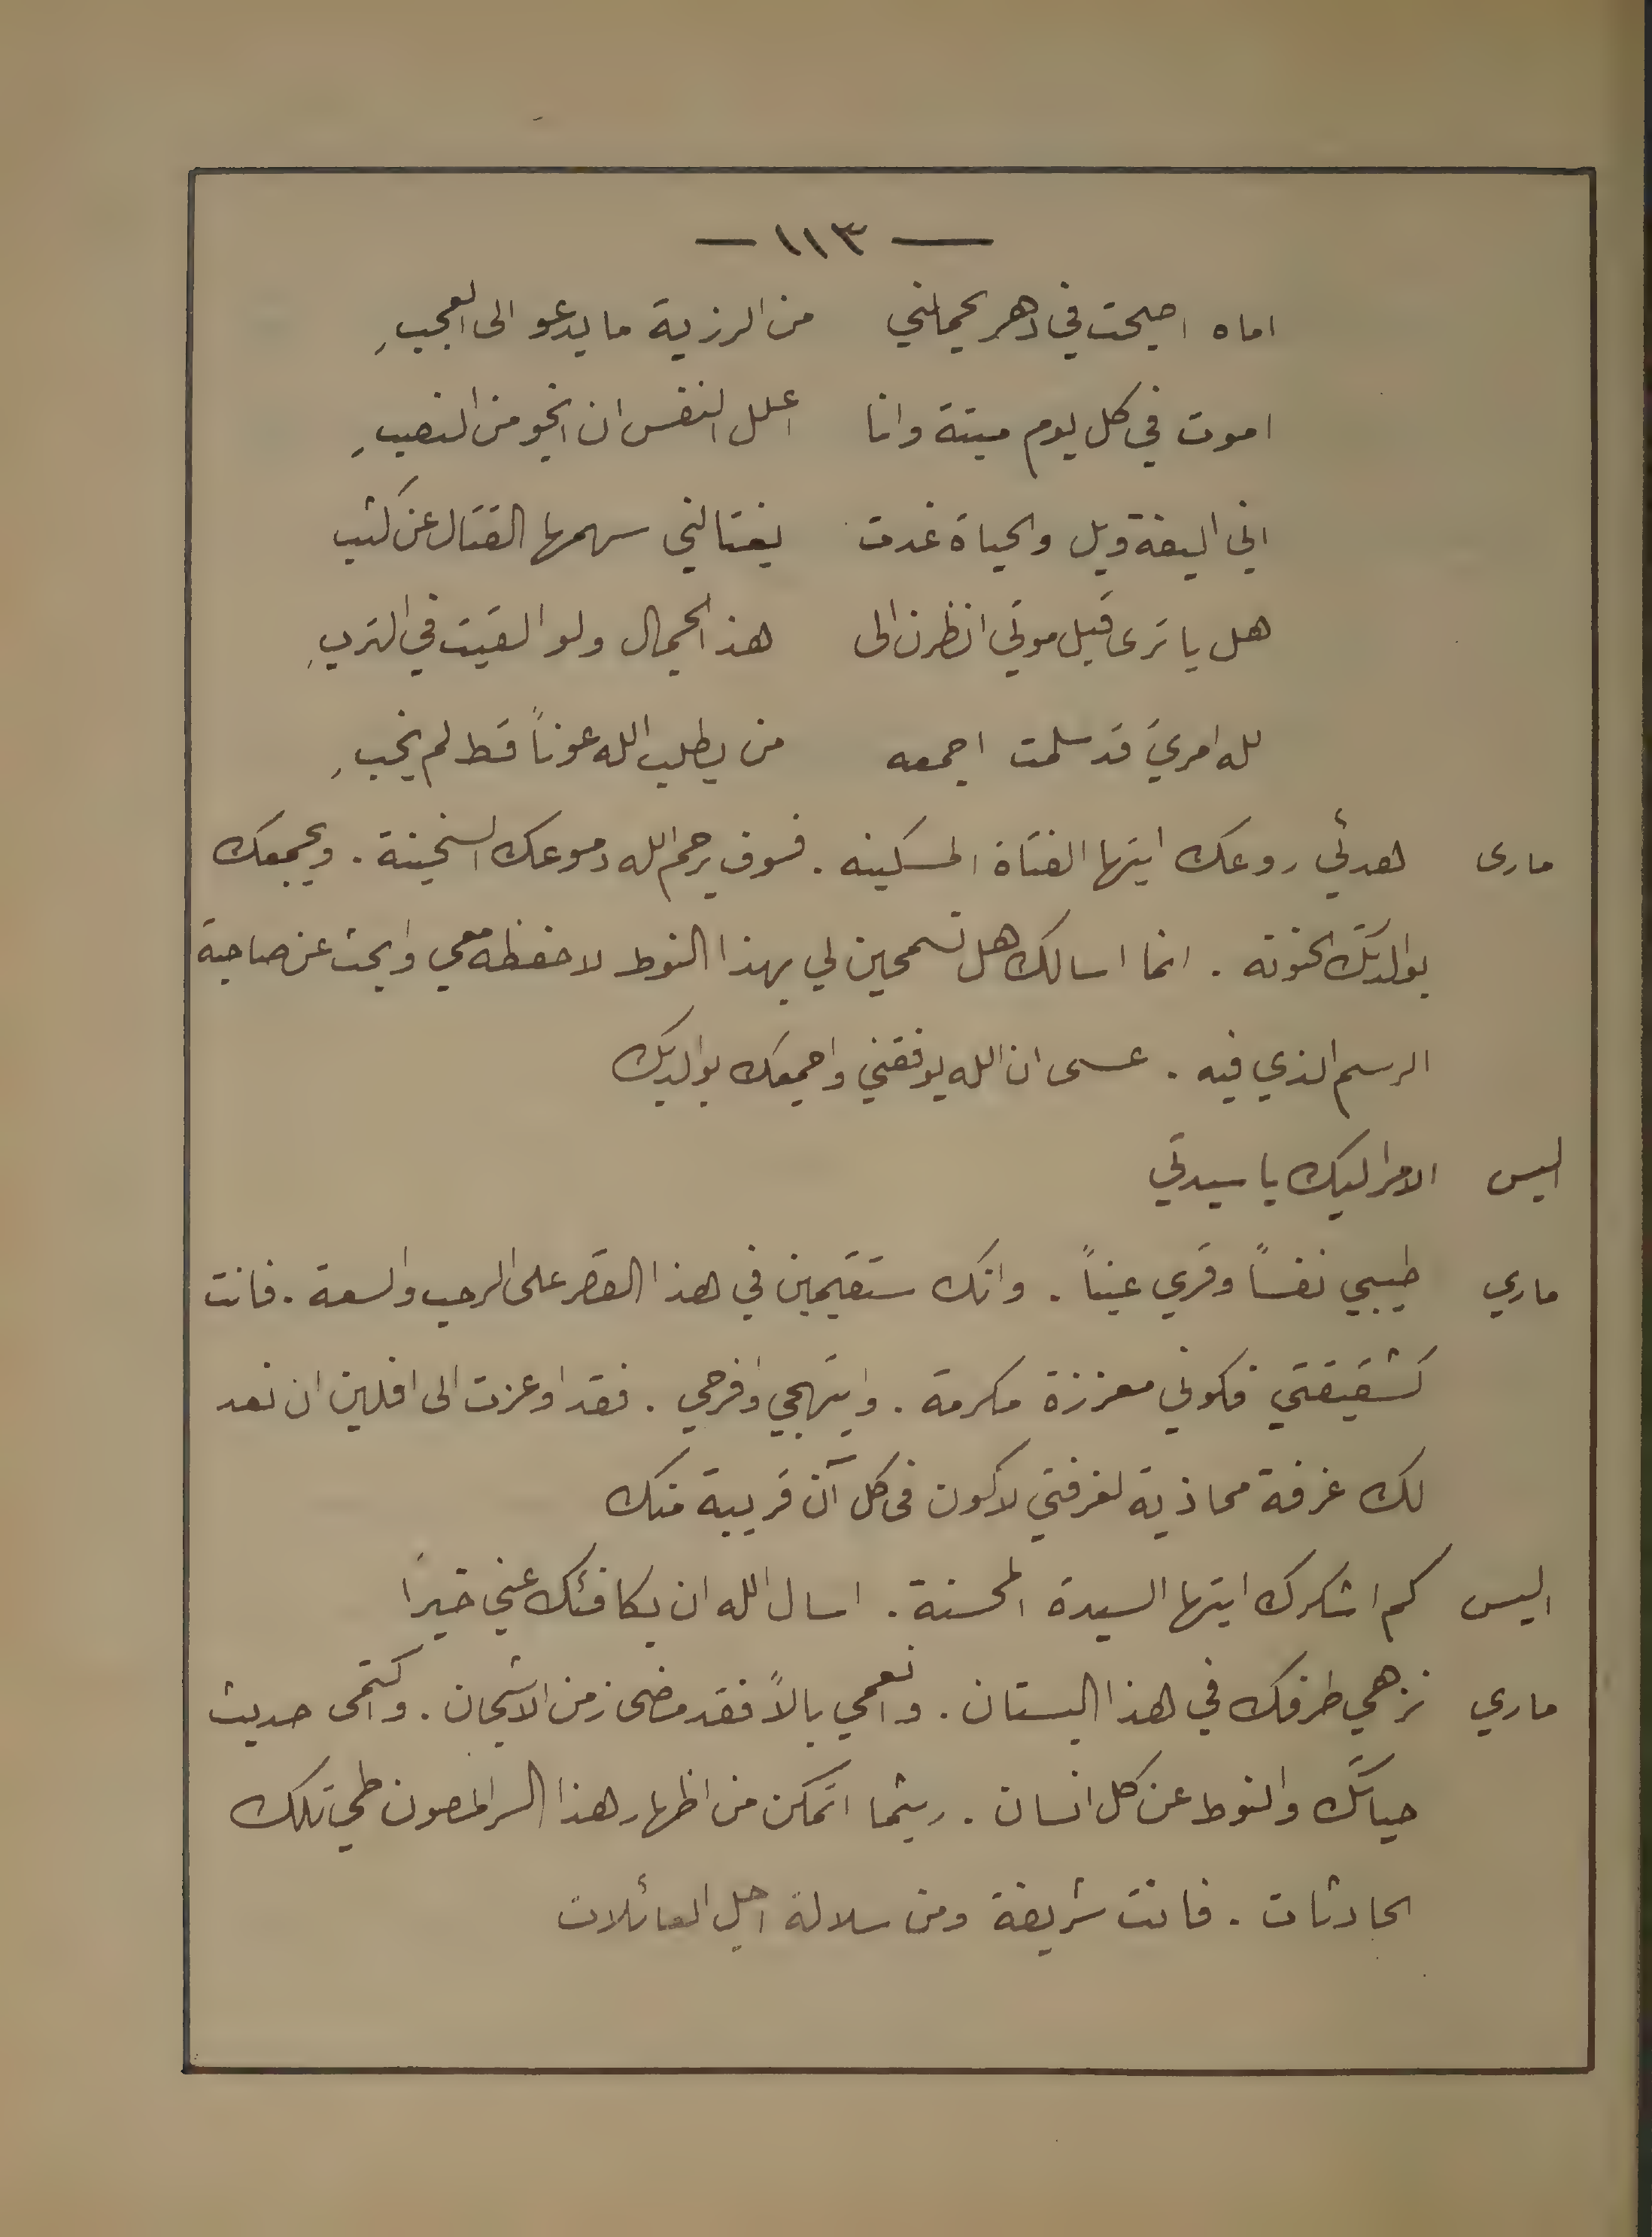 — ١١٣ —
اماه اصبحت في دهر يحملني من الرزية ما يدعو الى العجبِ
اموت في كل يوم ميتة وانا اعلل النفس ان انجو من النصبِ
اني اليفة ويل والحياة غدت يغتالني سهمها القتال عن كثب
هل يا ترى قبل موتي انظرن الى هذا الجمال ولو القيت في التربِ
لله امري قد سلمت اجمعه من يطلب الله عوناً قط لم يخبِ
مارى هدئي روعك ايتها الفتاة المسكينه . فسوف يرحم الله دموعك السخينة . ويجمعك
بوالدتك الحنونه . انما اسالك هل تسمحين لي بهذا النوط لاحفظه معي وابحث عن صاحبة
الرسم الذي فيه . عسى ان الله يوفقني واجمعك بوالديك
اليس الامر اليك يا سيدتي
ماري طيبي نفساً وقري عيناً . وانك ستقيمين في هذا القصر على الرحب والسعة . فانت
كشقيقتي فكوني معززة مكرمة . وابتهجي وافرحي . فقد اوعزت الى افلين ان تعد
لك غرفة محاذية لغرفتي لاكون فى كل آن قريبة منك
اليس كم اشكرك ايتها السيدة المحسنة . اسال الله ان يكافئك عني خيراً
ماري نزهي طرفك في هذا البستان . وانعمي بالاً فقد مضى زمن الاشجان . واكتمى حديث
حياتك والنوط عن كل انسان . ريثما اتمكن من اظهار هذا السر المصون طي تلك
الحادثات . فانت شريفة ومن سلالة اجل العائلات